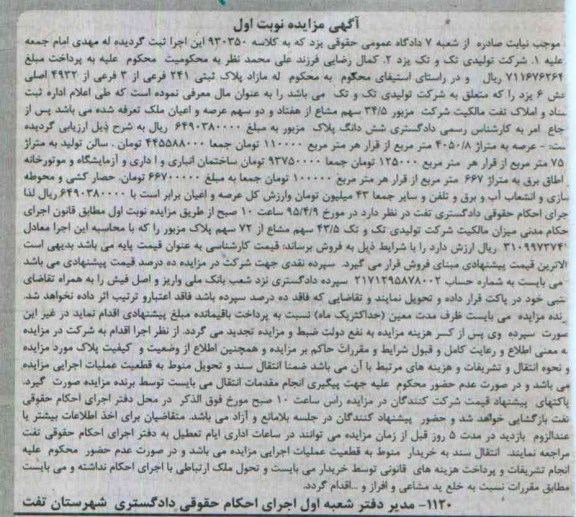 آگهی مزایده نوبت اول
موجب نیابت صادره از شعبه ۷ دادگاه عمومی حقوقی یزد که به کلاسه ۹۳۰۳۵۰ این اجرا ثبت گردیده له مهدی امام جمعه
علیه ۱. شرکت تولیدی تک و تک یزد ۲. کمال رضایی فرزند علی محمد نظر به محکومیت محکوم علیه به پرداخت مبلغ
۷۱۱۶۷۶۲۶۴ ریال و در راستای استیفای محکوم به محکوم له مازاد پلاک ثبتی ۲۴۱ فرعی از ۳ فرعی از ۴۹۳۲ اصلی
بخش ۶ یزد را که متعلق به شرکت تولیدی تک و تک می باشد را به عنوان مال معرفی نموده است که طی اعلام اداره ثبت
سناد و املاک تفت مالکیت شرکت ۳۴/۵ سهم مشاع از هفتاد و دو سهم عرصه و اعیان ملک تعرفه شده می باشد پس از
جاع امر به کارشناس رسمی دادگستری شش دانگ پلاک مزبور به مبلغ ۶۴۹۰۳۸۰۰۰۰ ریال به شرح ذیل ارزیابی گردیده
ست: - عرصه به متراژ ۴۰۵۰/۸ متر مربع از قرار هر متر مربع ۱۱۰۰۰۰ تومان جمعا ۴۴۵۵۸۸۰۰۰ تومان . سالن تولید به متراژ
۷۵ متر مربع از قرار هر متر مربع ۱۲۵۰۰۰ تومان جمعا ۹۳۷۵۰۰۰۰ تومان ساختمان انباری و اداری و آزمایشگاه و موتورخانه
اطاق برق به متراژ ۶۶۷ متر مربع از قرار هر متر مربع ۱۰۰۰۰۰ تومان جمعا به مبلغ ۶۶۷۰۰۰۰۰ تومان. حصار کشی و محوطه
سازی و انشعاب آب و برق و تلفن و سایر جمعا ۴۳ میلیون تومان وارزش کل عرصه و اعیان برابر است با ۶۴۹۰۳۸۰۰۰۰ ریال لذا
جرای احکام حقوقی دادگستری تفت در نظر دارد در مورخ ۹۵/۴/۹ ساعت ۱۰ صبح از طریق مزایده نوبت اول مطابق قانون اجرای
حکام مدنی میزان مالکیت شرکت تولیدی تک و تک ۴۳/۵ سهم مشاع از ۷۲ سهم پلاک مزبور را که با محاسبه این اجرا معادل
۳۱۰۹۹۷۳۷۴۰ ریال ارزش دارد را با شرایط ذیل به فروش برساند: قیمت کارشناسی به عنوان قیمت پایه می باشد بدیهی است
الاترین قیمت پیشنهادی مبنای فروش قرار می گیرد. سپرده نقدی جهت شرکت در مزایده ده درصد قیمت پیشنهادی می باشد
می بایست به شماره حساب ۲۱۷۱۲۹۵۸۷۸۰۰۲ سپرده دادگستری نزد شعب بانک ملی واریز و اصل فیش را به همراه تقاضای
تبی خود در پاکت قرار داده و تحویل نمایند و تقاضایی که فاقد ده درصد سپرده باشد فاقد اعتبارو ترتیب اثر داده نخواهد شد.
رنده مزایده می بایست ظرف مدت معین (حداکثریک ماه) نسبت به پرداخت باقیمانده مبلغ پیشنهادی اقدام نماید در غیر این
صورت سپرده وی پس از کسر هزینه مزایده به نفع دولت ضبط و مزایده تجدید می گردد. از نظر اجرا اقدام به شرکت در مزایده
به معنی اطلاع و رعایت کامل و قبول شرایط و مقررات حاکم بر مزایده و همچنین اطلاع از وضعیت و کیفیت پلاک مورد مزایده
و نحوه انتقال و تشریفات و هزینه های مرتبط با آن می باشد ضمنا انتقال سند و تحویل منوط به قطعیت عملیات اجرایی مزایده
می باشد و در صورت عدم حضور محکوم علیه جهت پیگیری انجام مقدمات انتقال می بایست توسط برنده مزایده صورت گیرد.
پاکتهای پیشنهاد قیمت شرکت کنندگان در مزایده راس ساعت ۱۰ صبح مورخ فوق الذکر در محل دفتر اجرای احکام حقوقی
تفت بازگشایی خواهد شد و حضور پیشنهاد کنندگان در جلسه بلامانع و آزاد می باشد. متقاضیان برای اخذ اطلاعات بیشتر یا
عندالزوم بازدید در مدت ۵ روز قبل از زمان مزایده می توانند در ساعات اداری ایام تعطیل به دفتر اجرای احکام حقوقی تفت
مراجعه نمایند. انتقال سند به خریدار منوط به قطعیت عملیات اجرایی مزایده می باشد و در صورت عدم حضور محکوم علیه
انجام تشریفات و پرداخت هزینه های قانونی توسط خریدار می بایست و تحول ملک ارتباطی با اجرای احکام نداشته و می بایست
مطابق مقررات نسبت به خلع ید مشاعی و افراز و ...اقدام گردد.
۱۱۲۰- مدیر دفتر شعبه اول اجرای احکام حقوقی دادگستری شهرستان تفت